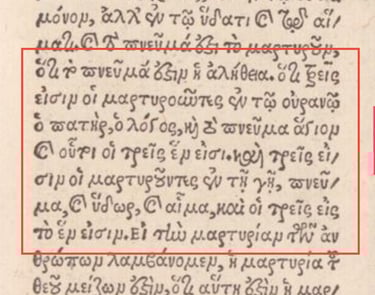 μόνον, ἀλλ᾽ ἐν τῷ ὕδατι καὶ τῷ αἵ/
ματι. καὶ τὸ πνεῦμά ἐστι τὸ μαρτυροῦν,
ὅτι τὸ πνεῦμά ἐστιν ἡ ἀλήθεια. ὅτι τρεῖς
εἰσιν οἱ μαρτυροῦντες ἐν τῷ οὐρανῷ
ὁ πατὴρ, ὁ λόγος, καὶ τὸ πνεῦμα ἅγιον
καὶ οὗτοι οἱ τρεῖς ἕν εἰσι. καὶ τρεῖς εἰ/
σιν οἱ μαρτυροῦντες ἐν τῇ γῇ, πνεῦ/
μα, καὶ ὕδωρ, καὶ αἷμα, καὶ οἱ τρεῖς εἰς
τὸ ἕν εἰσιν. Εἰ τὴν μαρτυρίαν τῶν ἀν
θρώπων λαμβάνομεν, ἡ μαρτυρία τοῦ
θεοῦ μείζων ἐστὶν, ὅτι αὕτη ἐστὶν ἡ μαρ/